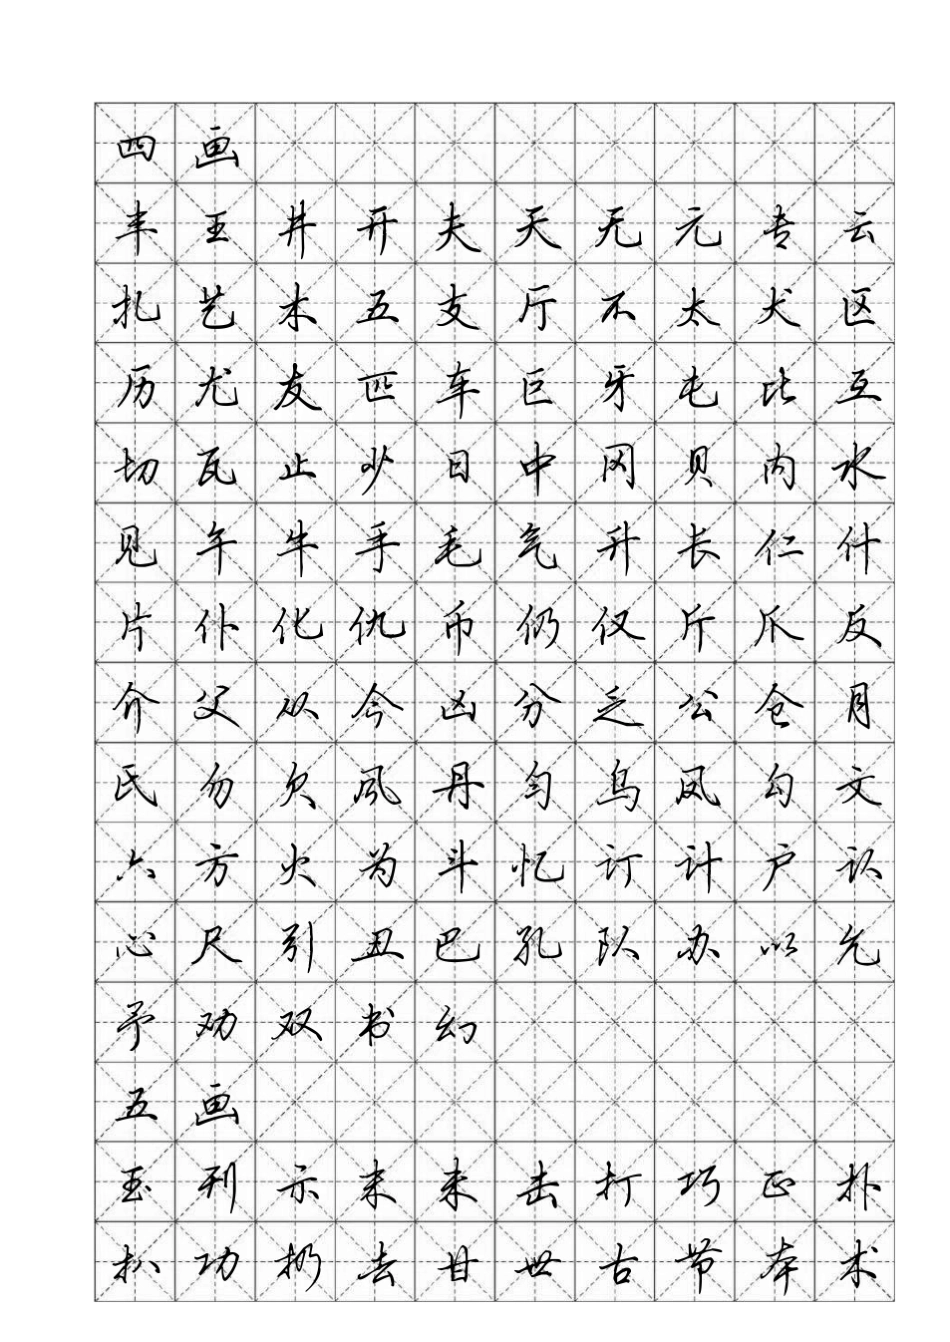 四画
丰王井开夫天无元专云
扎艺木五支厅不太犬区
历尤友匹车巨牙屯比互
切瓦止少日中冈贝内水
见午牛手毛气升长仁什
片仆化仇币仍仅斤爪反
介父从今凶分乏公仓月
氏勿欠风丹匀乌凤勾文
六方火为斗忆订计户认
心尺引丑巴孔队办以允
予劝双书幻
五画
玉刊示末未击打巧正扑
扒功扔去甘世古节本术